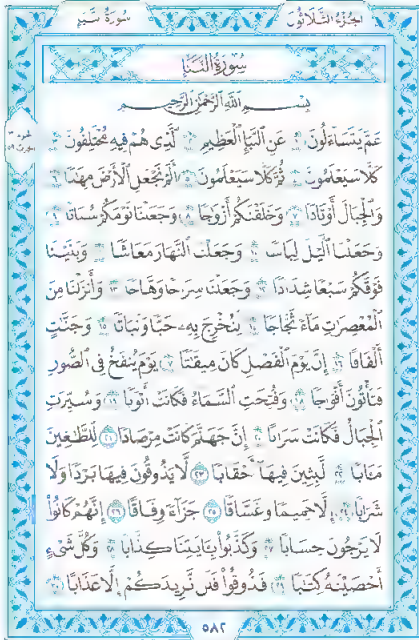 الجزء الثلاثون
سورة النبإ
سورة النبإ
بسم الله الرحمن الرحيم
عم يتساءلون ١ عن النبإ العظيم ٢ الذي هم فيه مختلفون ٣
كلا سيعلمون ٤ ثم كلا سيعلمون ٥ ألم نجعل الأرض مهدا ٦
والجبال أوتادا ٧ وخلقنكم أزوجا ٨ وجعلنا نومكم سباتا ٩
وجعلنا اليل لباسا ١٠ وجعلنا النهار معاشا ١١ وبنينا
فوقكم سبعا شدادا ١٢ وجعلنا سراجا وهاجا ١٣ وأنزلنا من
المعصرت ماء ثجاجا ١٤ لنخرج به حبا ونباتا ١٥ وجنت
ألفافا ١٦ إن يوم الفصل كان ميقتا ١٧ يوم ينفخ في الصور
فتأتون أفواجا ١٨ وفتحت السماء فكانت أبوبا ١٩ وسيرت
الجبال فكانت سرابا ٢٠ إن جهنم كانت مرصادا ٢١ للطغين
مابا ٢٢ لبثين فيها أحقابا ٢٣ لا يذوقون فيها بردا ولا
شرابا ٢٤ إلا حميما وغساقا ٢٥ جزاء وفاقا ٢٦ إنهم كانوا
لا يرجون حسابا ٢٧ وكذبوا بايتنا كذابا ٢٨ وكل شيء
أحصينه كتبا ٢٩ فذوقوا فلن نزيدكم إلا عذابا ٣٠
٥٨٢